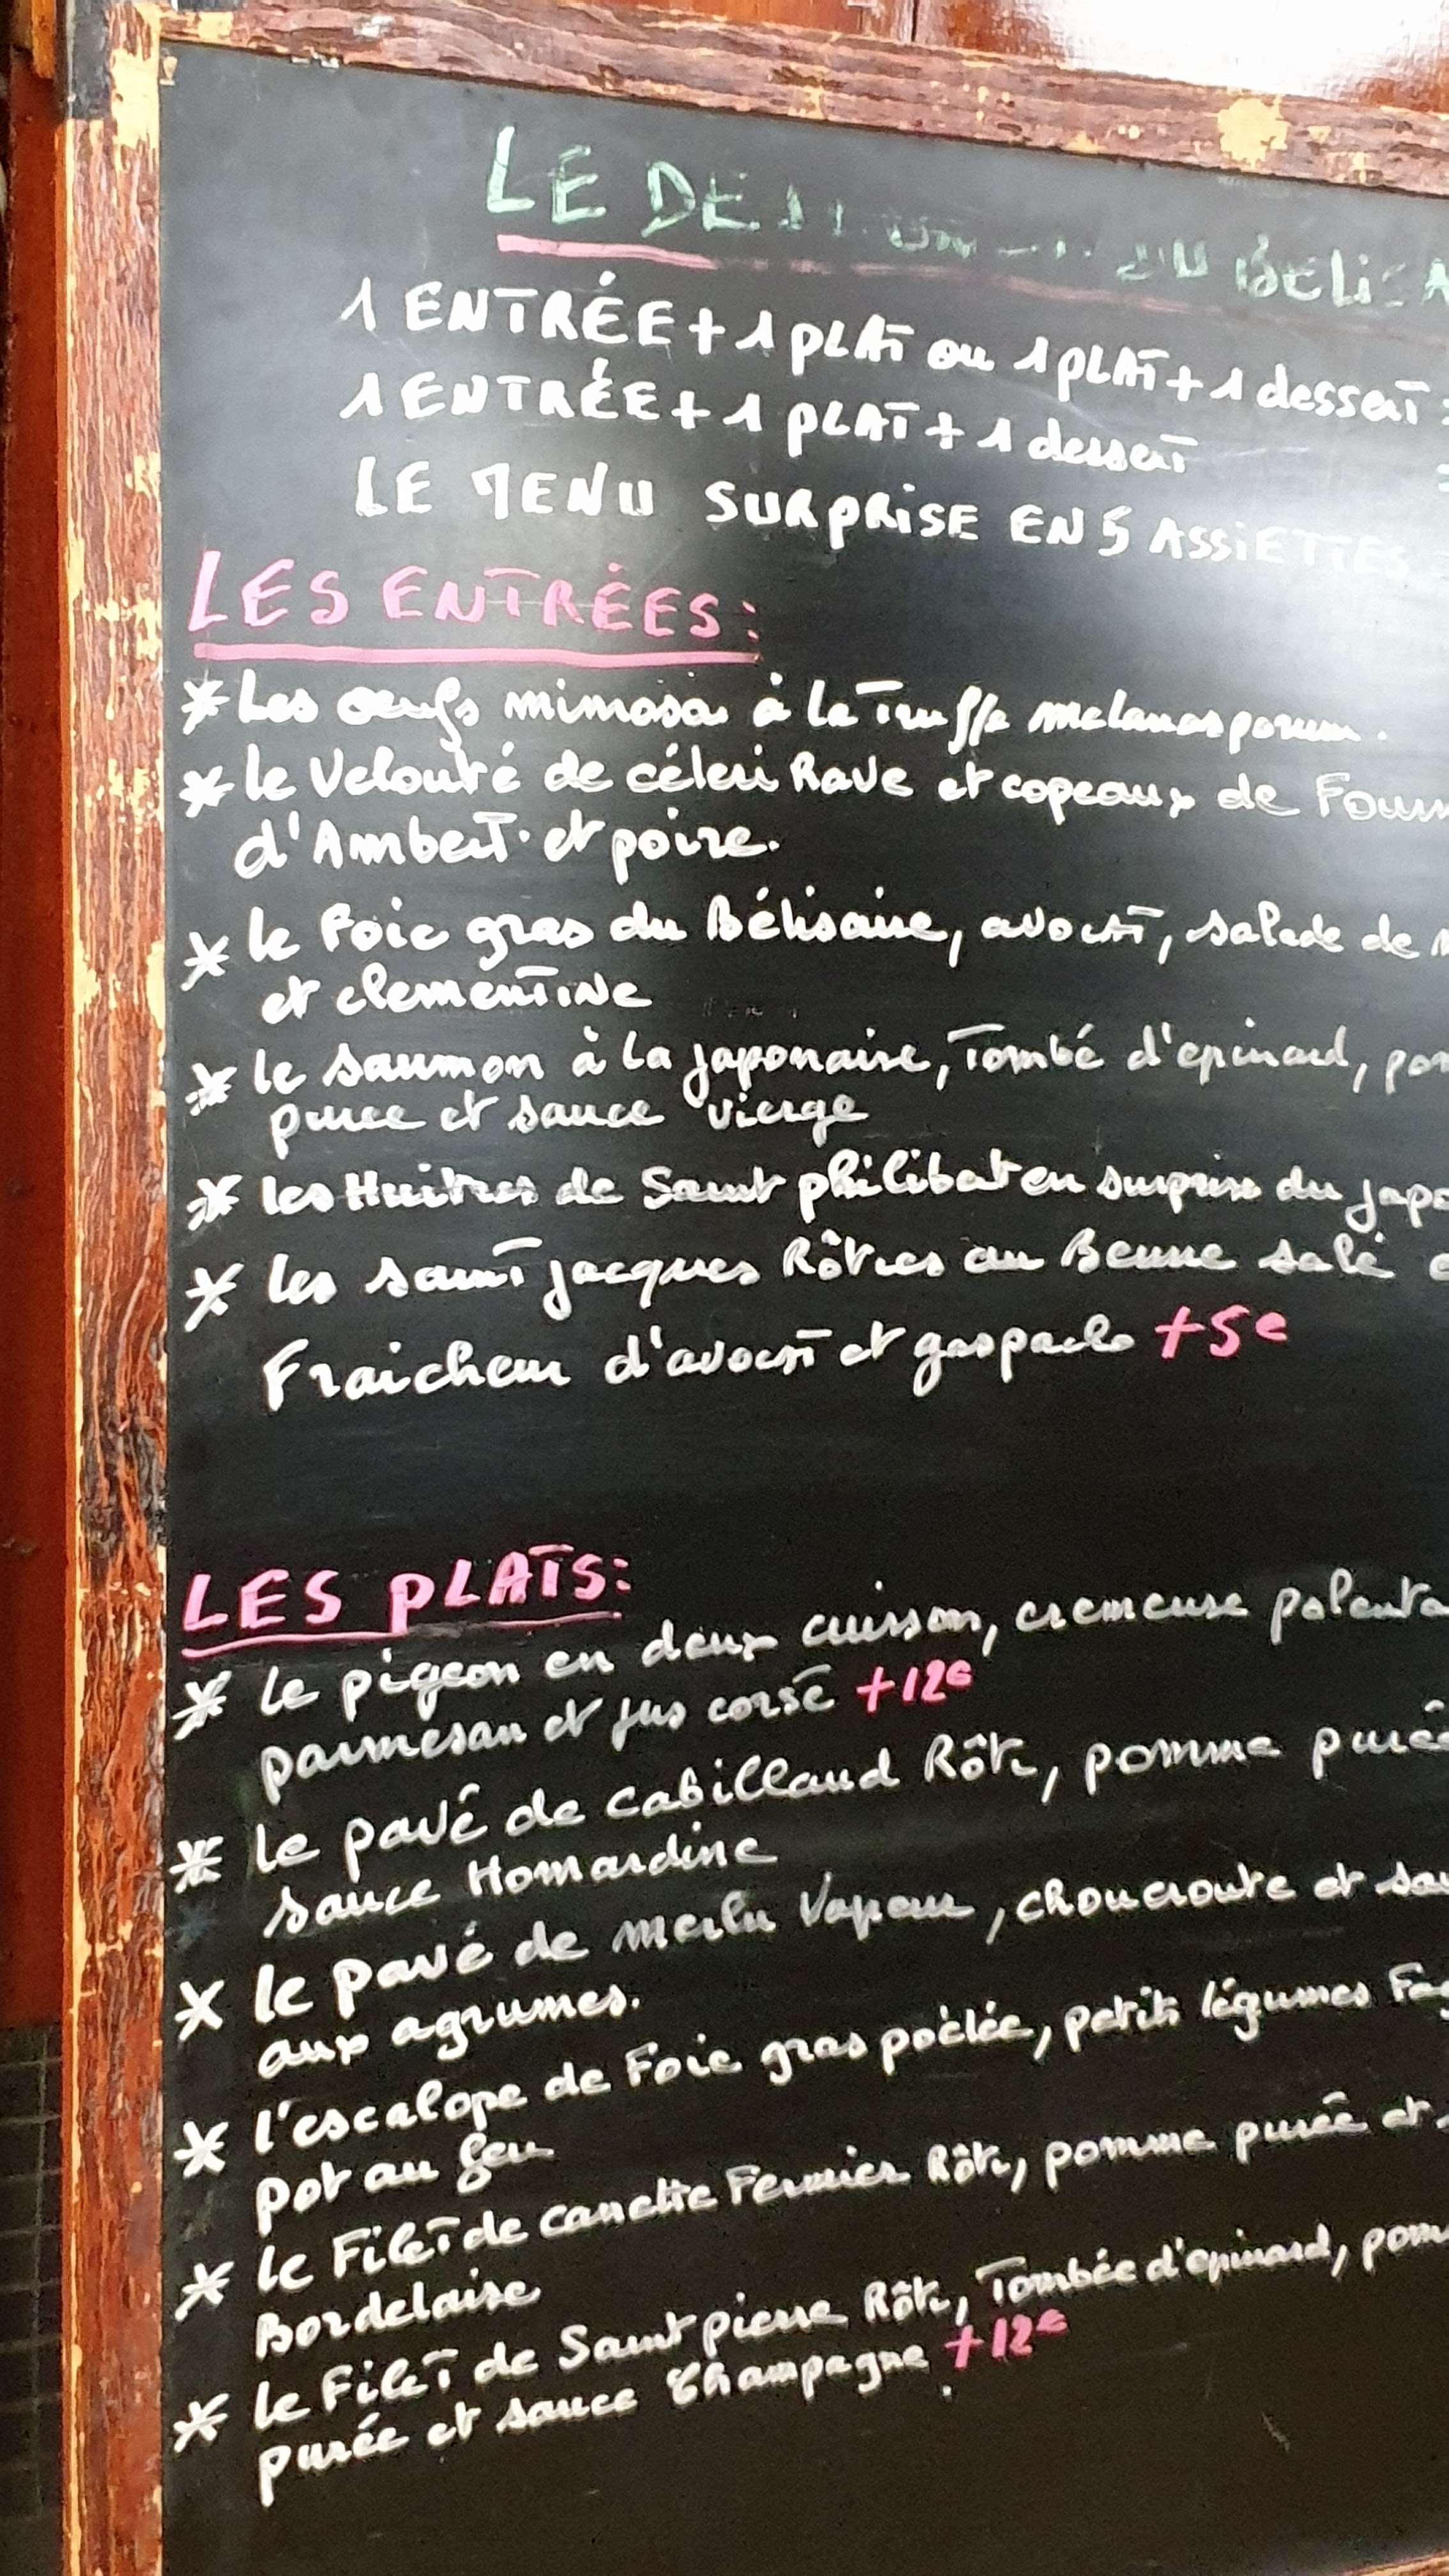 LE DE DU BELISA
1 ENTRÉE + 1 PLAT ou 1 PLAT + 1 dessert =
1 ENTRÉE + 1 PLAT + 1 dessert =
LE MENU SURPRISE EN 5 ASSIETTES =
LES ENTRÉES:
* Les œufs mimosa à la Truffe melanosporum.
* le Velouté de céleri Rave et copeaux de Fourm
d'Ambert. et poire.
* le Foie gras du Bélisaire, avocat, salade de m
et clementine
* le saumon à la japonaise, Tombé d'epinard, pom
puree et sauce vierge
* les Huitres de Saint philibert en surprise du japo
* les saint jacques Rôties au Beurre salé e
Fraicheur d'avocat et gaspacho +5€
LES PLATS:
* le pigeon en deux cuisson, cremeuse polenta
parmesan et jus corsé +12€
* le pavé de cabillaud Rôti, pomme purée
sauce Homardine
* le pavé de merlu Vapeur, choucroute et sau
aux agrumes.
* l'escalope de Foie gras poêlée, petits légumes Faç
pot au feu
* le Filet de canette Fermier Rôti, pomme purée et
Bordelaise
* le Filet de Saint pierre Rôti, Tombée d'epinard, pom
purée et sauce Champagne +12€